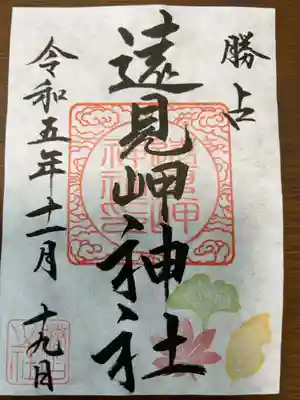 勝占
遠見岬神社
令和五年十一月
十九日